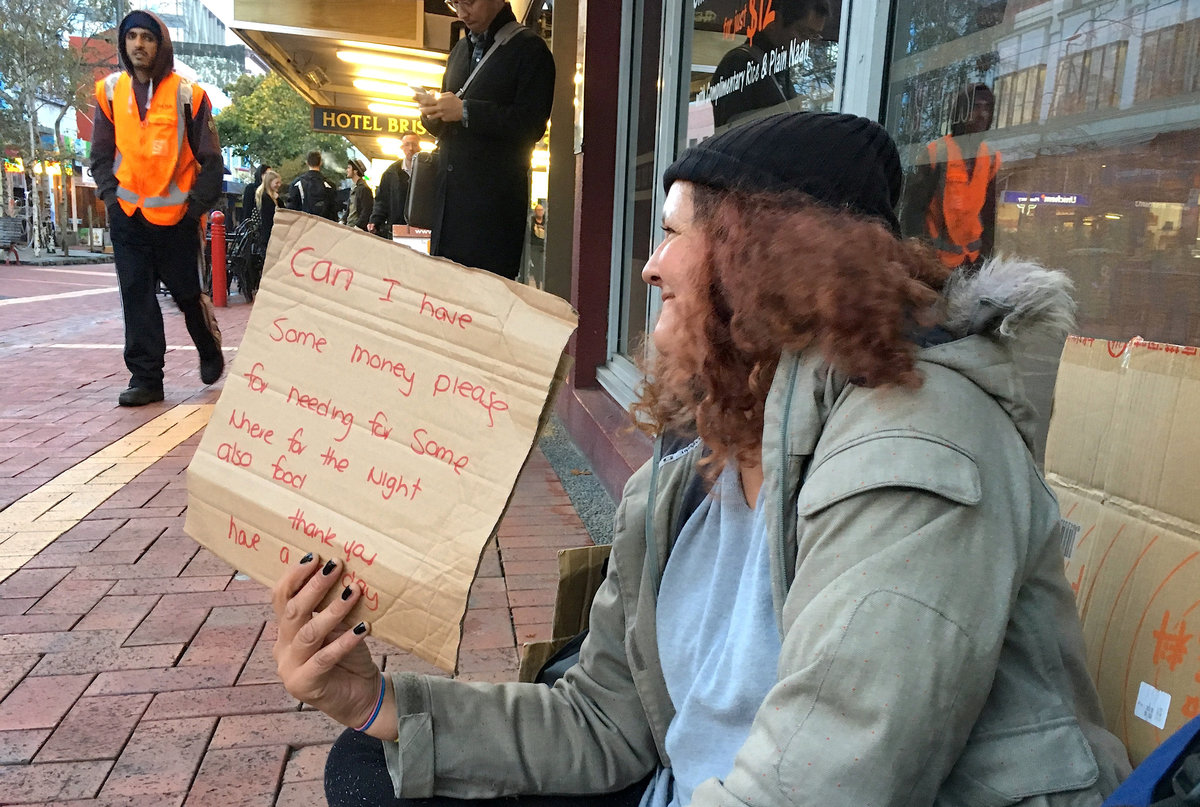 for just $12
Complimentary Rice & Plain Naan
HOTEL BRIS
Can I have
Some money please
for needing for Some
Where for the Night
also food
thank you
have a day